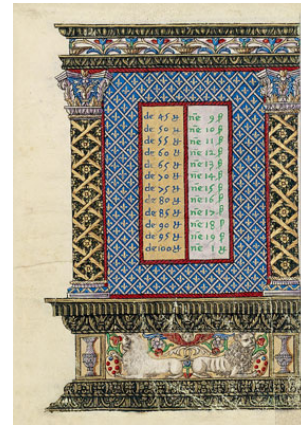 de 45 ℔ nͤe 9 ẞ
de 50 ℔ nͤe 10 ẞ
de 55 ℔ nͤe 11 ẞ
de 60 ℔ nͤe 12 ẞ
de 65 ℔ nͤe 13 ẞ
de 70 ℔ nͤe 14 ẞ
de 75 ℔ nͤe 15 ẞ
de 80 ℔ nͤe 16 ẞ
de 85 ℔ nͤe 17 ẞ
de 90 ℔ nͤe 18 ẞ
de 95 ℔ nͤe 19 ẞ
de 100 ℔ nͤe 1 ℔